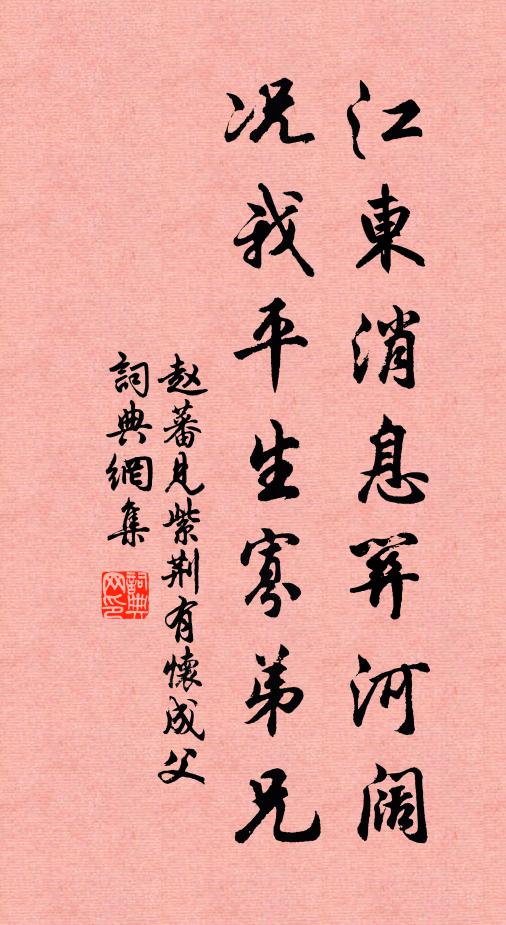 江東消息算河阔
况我平生寡弟兄
赵蕃見紫荆有懷成父
詞典網集
詞典网印